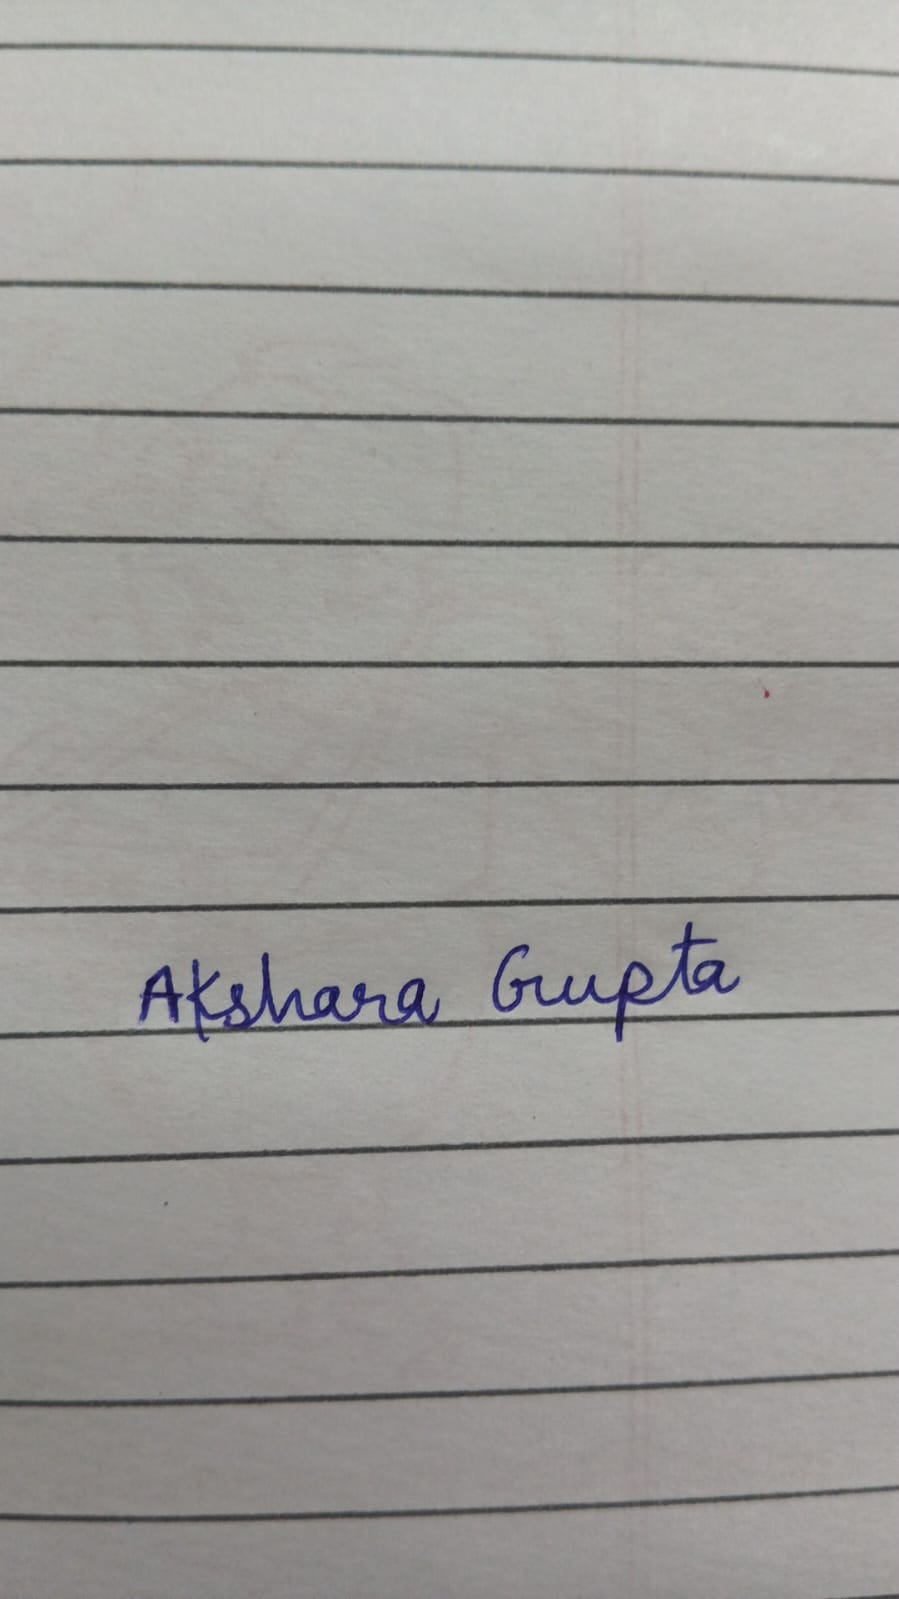 Akshara Gupta